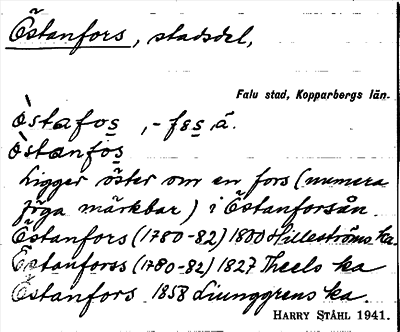 Östanfors, stadsdel,
Falu stad, Kopparbergs län.
òstafos, -fss, å.
òstanfòs
Ligger öster om en fors (numera
föga märkbar) i Östanforsån.
Östanfors (1780-82) 1800 Hilleströms ka.
Östanforss (1780-82) 1827 Theels ka
Östanfors 1858 Ljunggrens ka.
HARRY STÅHL 1941.